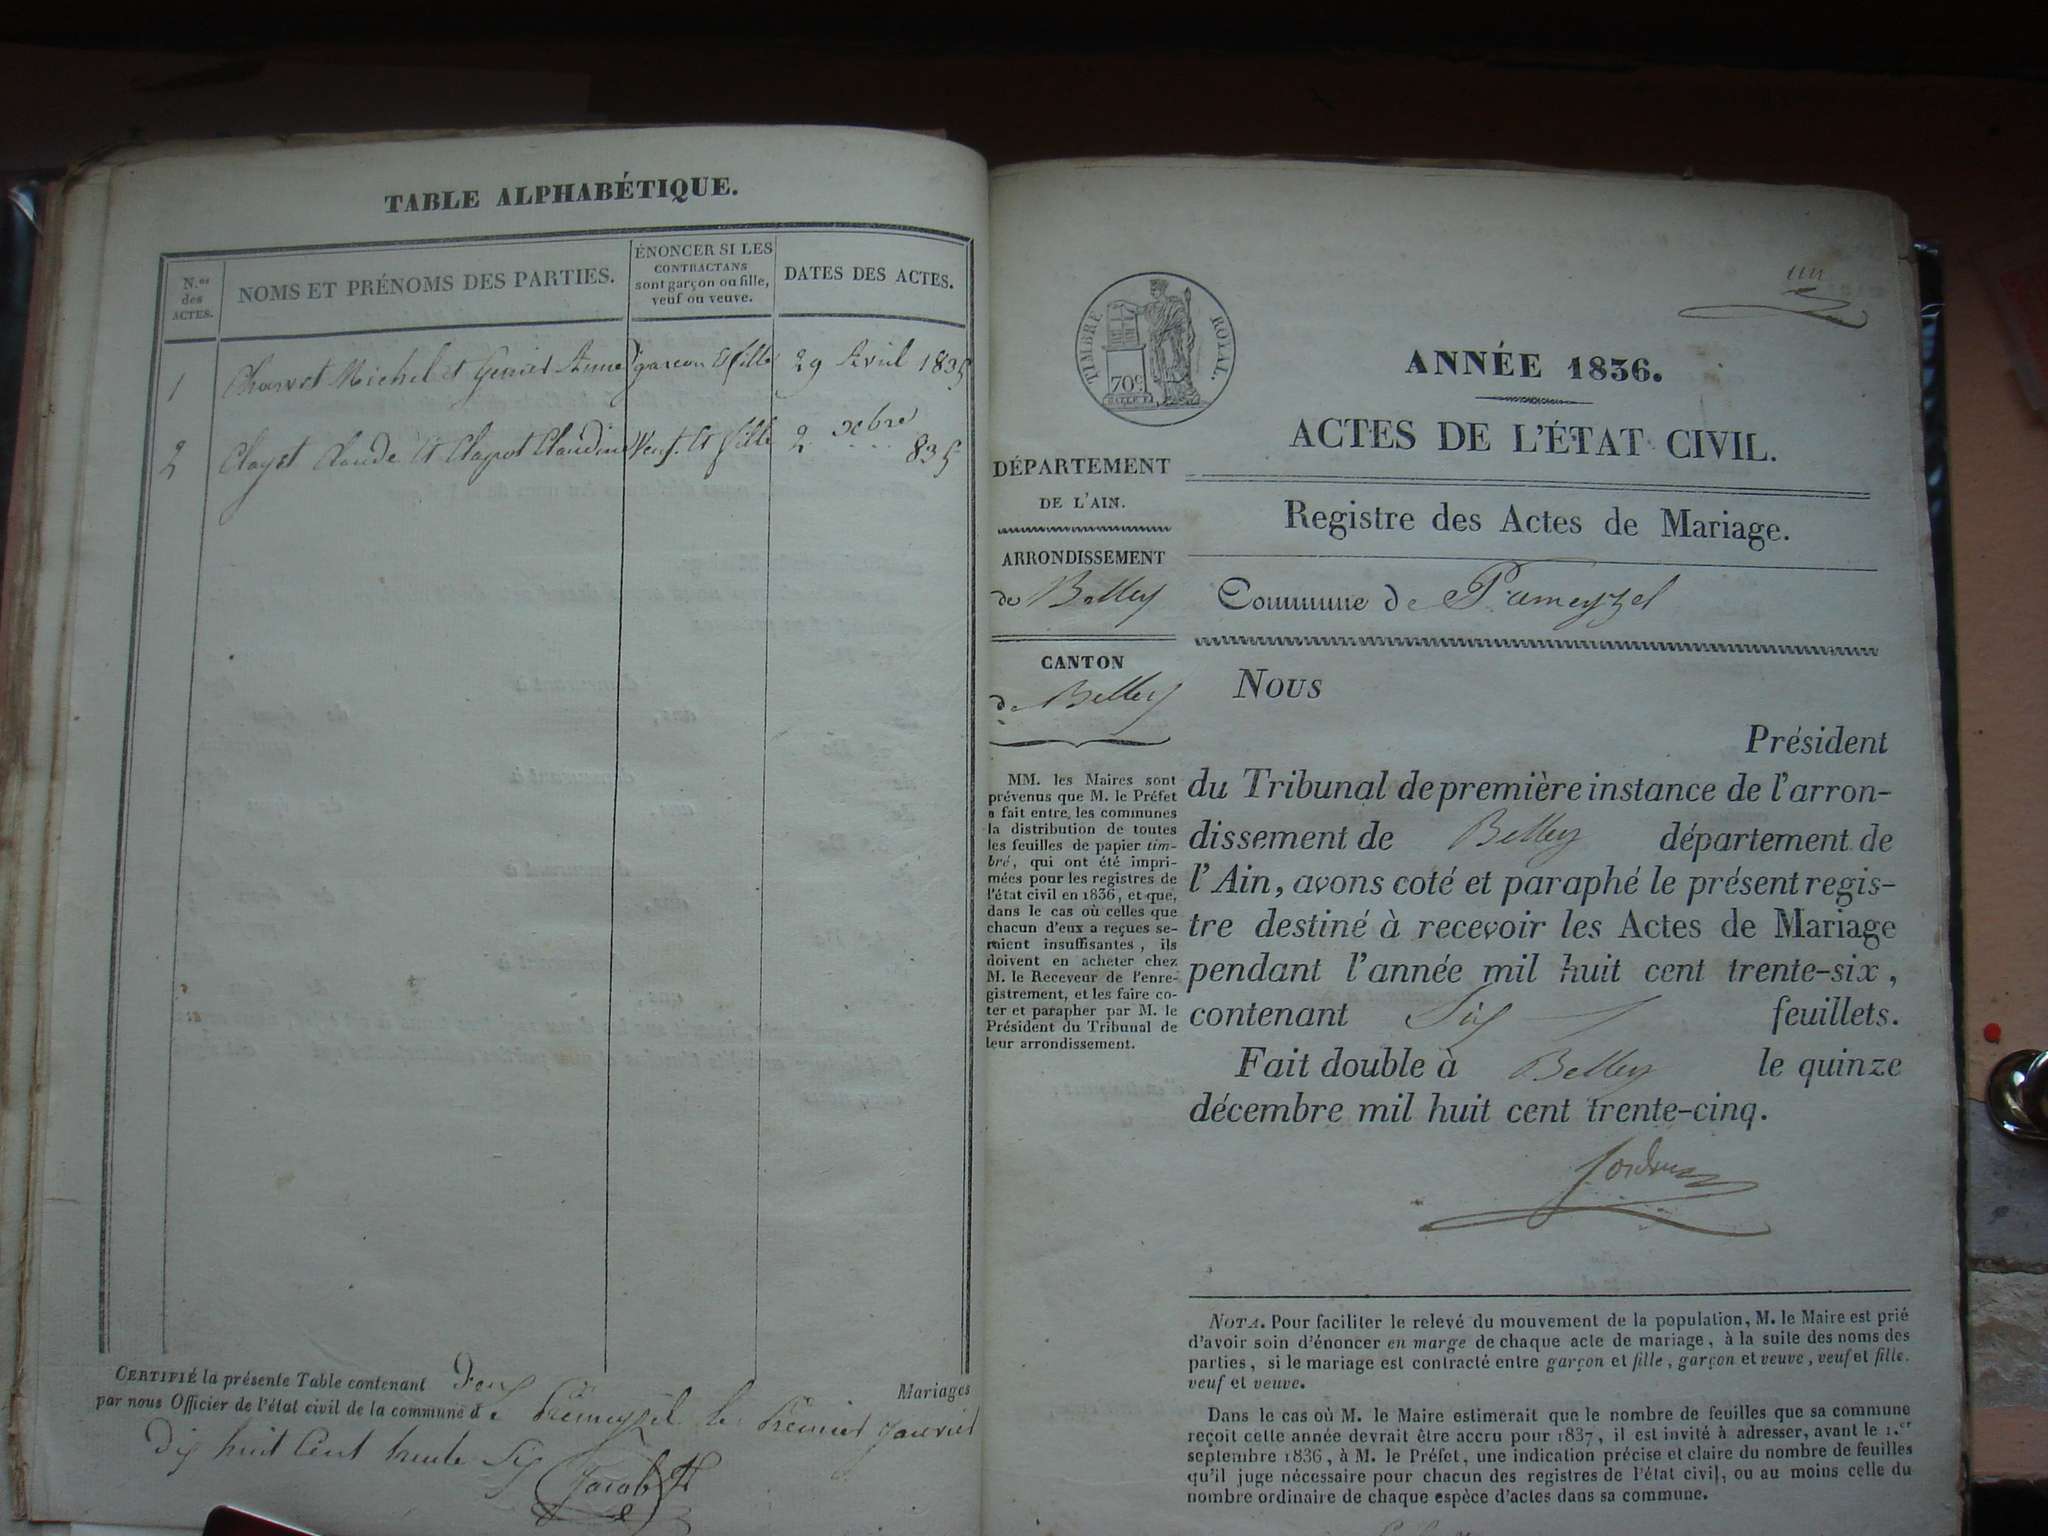 TABLE ALPHABÉTIQUE.
N.os des ACTES.
NOMS ET PRÉNOMS DES PARTIES.
ÉNONCER SI LES
CONTRACTANS
sont garçon ou fille,
veuf ou veuve.
DATES DES ACTES.
1 Charvet Michel et Genict Anne garcon Et fille 29 Avril 1835
2 Clayet Claude Et Clayet Claudine Veuf. Et fille 2 xbre 835
CERTIFIÉ la présente Table contenant Deux Mariages
par nous Officier de l'état civil de la commune de Prêmeyzel le Premier Janvier
Dix huit Cent trente Six
Jacob
TIMBRE ROYAL.
70c
ANNÉE 1836.
ACTES DE L'ÉTAT CIVIL.
Registre des Actes de Mariage.
Commune de Prêmeyzel
DÉPARTEMENT
DE L'AIN.
ARRONDISSEMENT
de Belley
CANTON
de Belley
MM. les Maires sont
prévenus que M. le Préfet
a fait entre les communes
la distribution de toutes
les feuilles de papier tim-
bré, qui ont été impri-
mées pour les registres de
l'état civil en 1836, et que,
dans le cas où celles que
chacun d'eux a reçues se-
raient insuffisantes, ils
doivent en acheter chez
M. le Receveur de l'enre-
gistrement, et les faire co-
ter et parapher par M. le
Président du Tribunal de
leur arrondissement.
Nous
Président
du Tribunal de première instance de l'arron-
dissement de Belley département de
l'Ain, avons coté et paraphé le présent regis-
tre destiné à recevoir les Actes de Mariage
pendant l'année mil huit cent trente-six,
contenant Six feuillets.
Fait double à Belley le quinze
décembre mil huit cent trente-cinq.
NOTA. Pour faciliter le relevé du mouvement de la population, M. le Maire est prié
d'avoir soin d'énoncer en marge de chaque acte de mariage, à la suite des noms des
parties, si le mariage est contracté entre garçon et fille, garçon et veuve, veuf et fille,
veuf et veuve.
Dans le cas où M. le Maire estimerait que le nombre de feuilles que sa commune
reçoit cette année devrait être accru pour 1837, il est invité à adresser, avant le 1.er
septembre 1836, à M. le Préfet, une indication précise et claire du nombre de feuilles
qu'il juge nécessaire pour chacun des registres de l'état civil, ou au moins celle du
nombre ordinaire de chaque espèce d'actes dans sa commune.